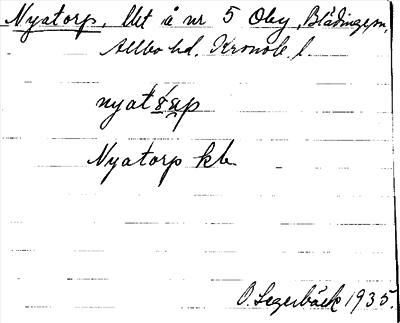 Nyatorp, lht å nr 5 Oby, Blädinge sn,
Allbo hd. Kronob. l.
nyatårp
Nyatorp kb
O. Segerbäck 1935.